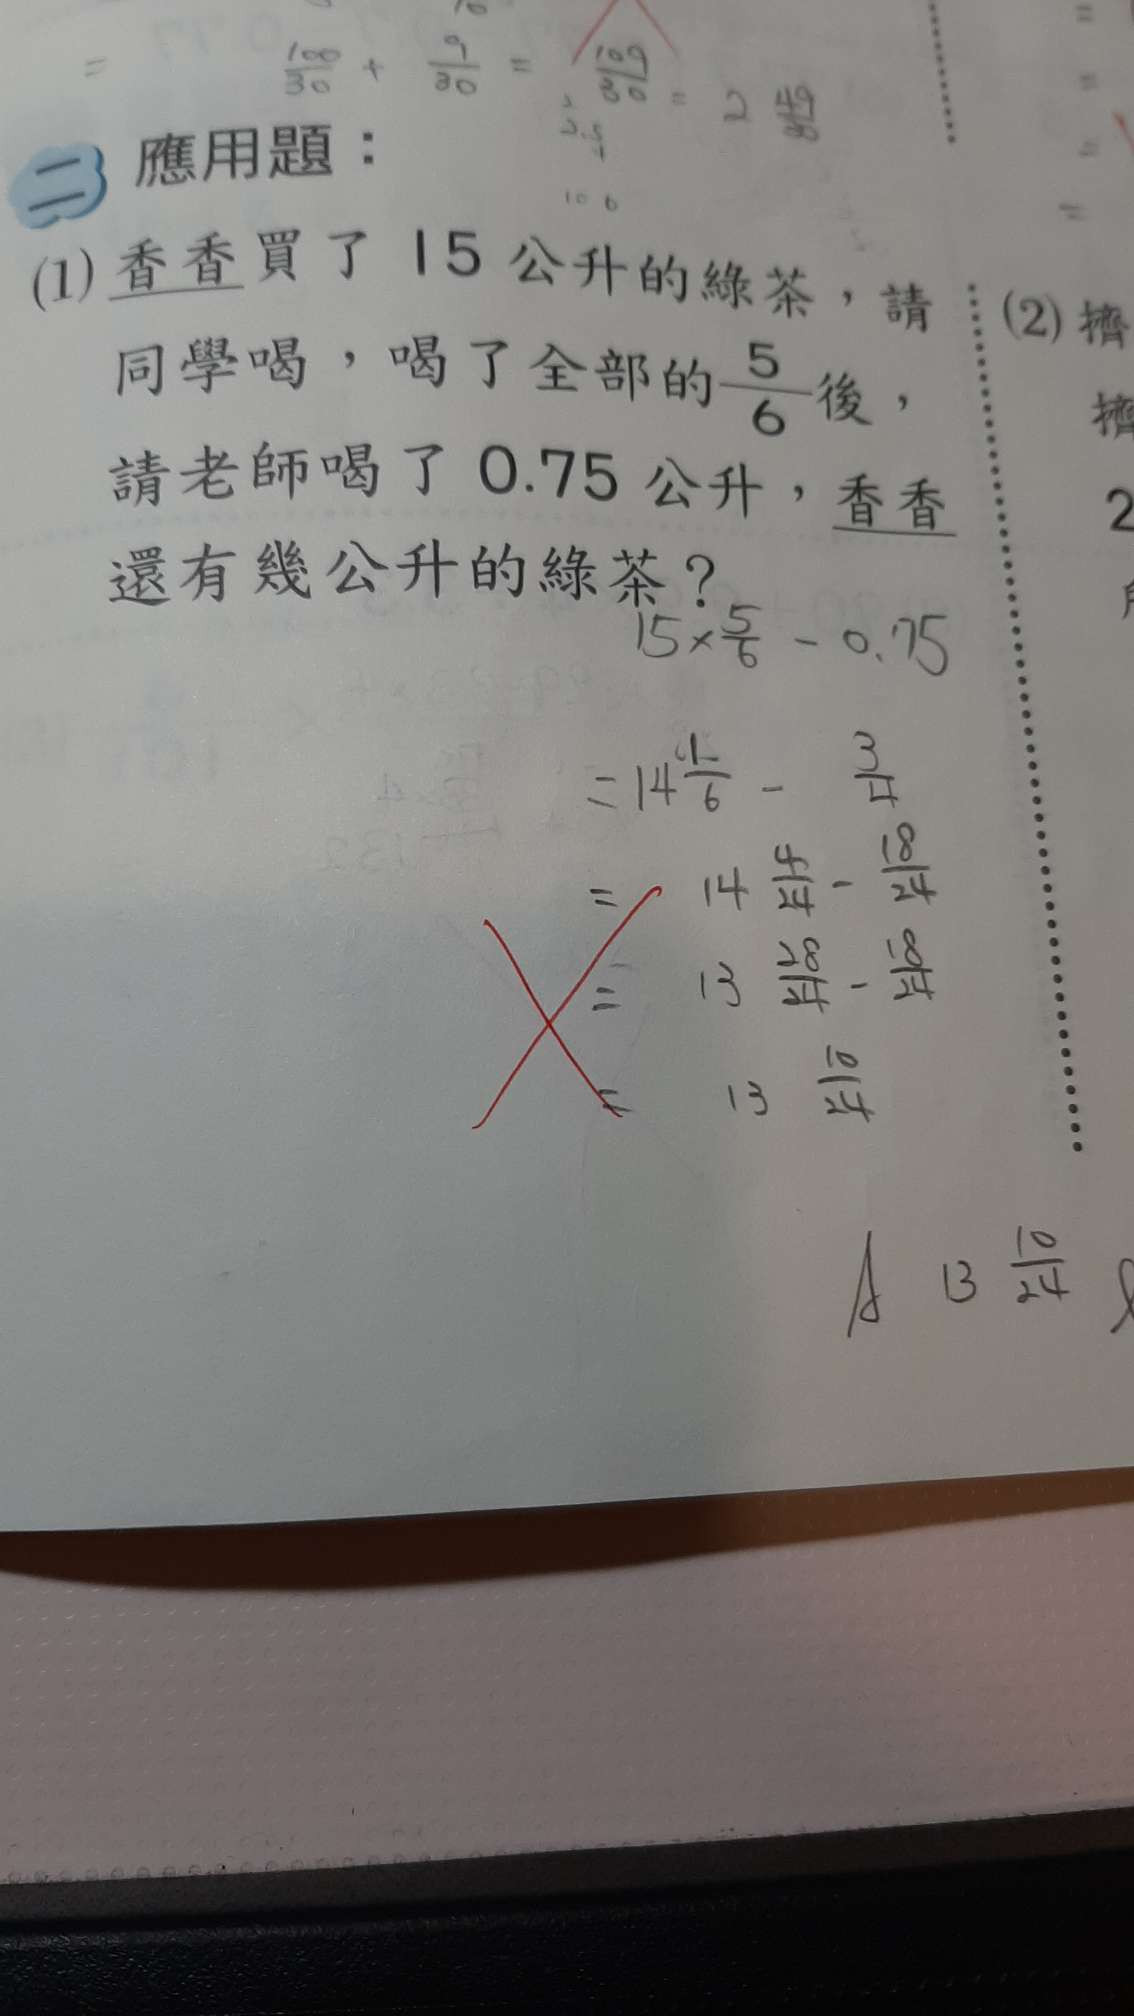 = 100/30 + 9/30 = 109/30 = 2 49/30
二 應用題：
(1) 香香買了 15 公升的綠茶，請
同學喝，喝了全部的 5/6 後，
請老師喝了 0.75 公升，香香
還有幾公升的綠茶？
15 × 5/6 - 0.75
= 14 1/6 - 3/4
= 14 4/24 - 18/24
= 13 28/24 - 18/24
= 13 10/24
A 13 10/24
(2) 擠
擠
2